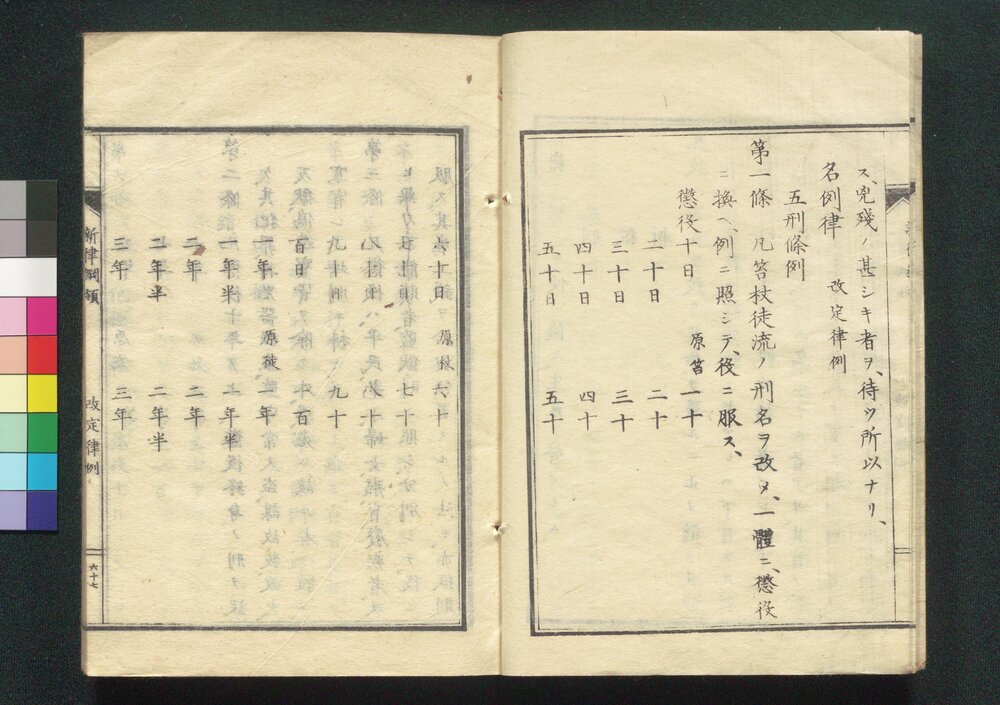 ス、兇殘ノ甚シキ者ヲ、待ツ所以ナリ、
名例律 改定律例
五刑條例
第一條 凡笞杖徒流ノ刑名ヲ改メ、一體ニ、懲役
ニ換ヘ、例ニ照シテ、役ニ服ス、
懲役十日 原笞一十
二十日 二十
三十日 三十
四十日 四十
五十日 五十
六十日 原杖六十
七十
九十
百日 百
一年 原徒一年
一年半 一年半
二年 二年
二年半 二年半
三年 三年
新律綱領 改定律例 六十七